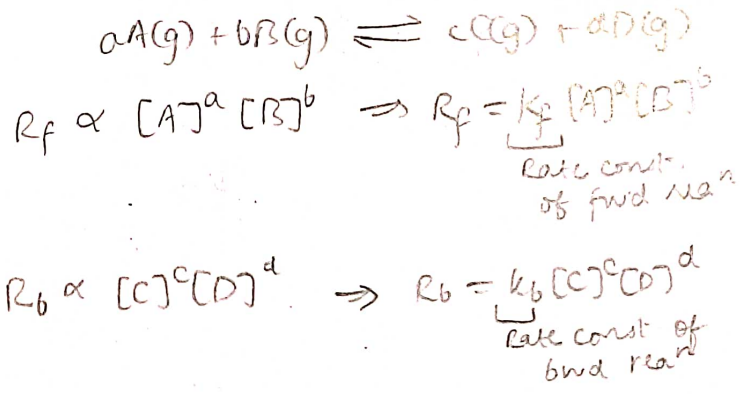 aA(g) + bB(g) ⇌ cC(g) + dD(g)
Rf ∝ [A]^a [B]^b ⇒ Rf = kf [A]^a [B]^b
Rate const.
of fwd rea^n
Rb ∝ [C]^c [D]^d ⇒ Rb = kb [C]^c [D]^d
Rate const of
bwd rea^n